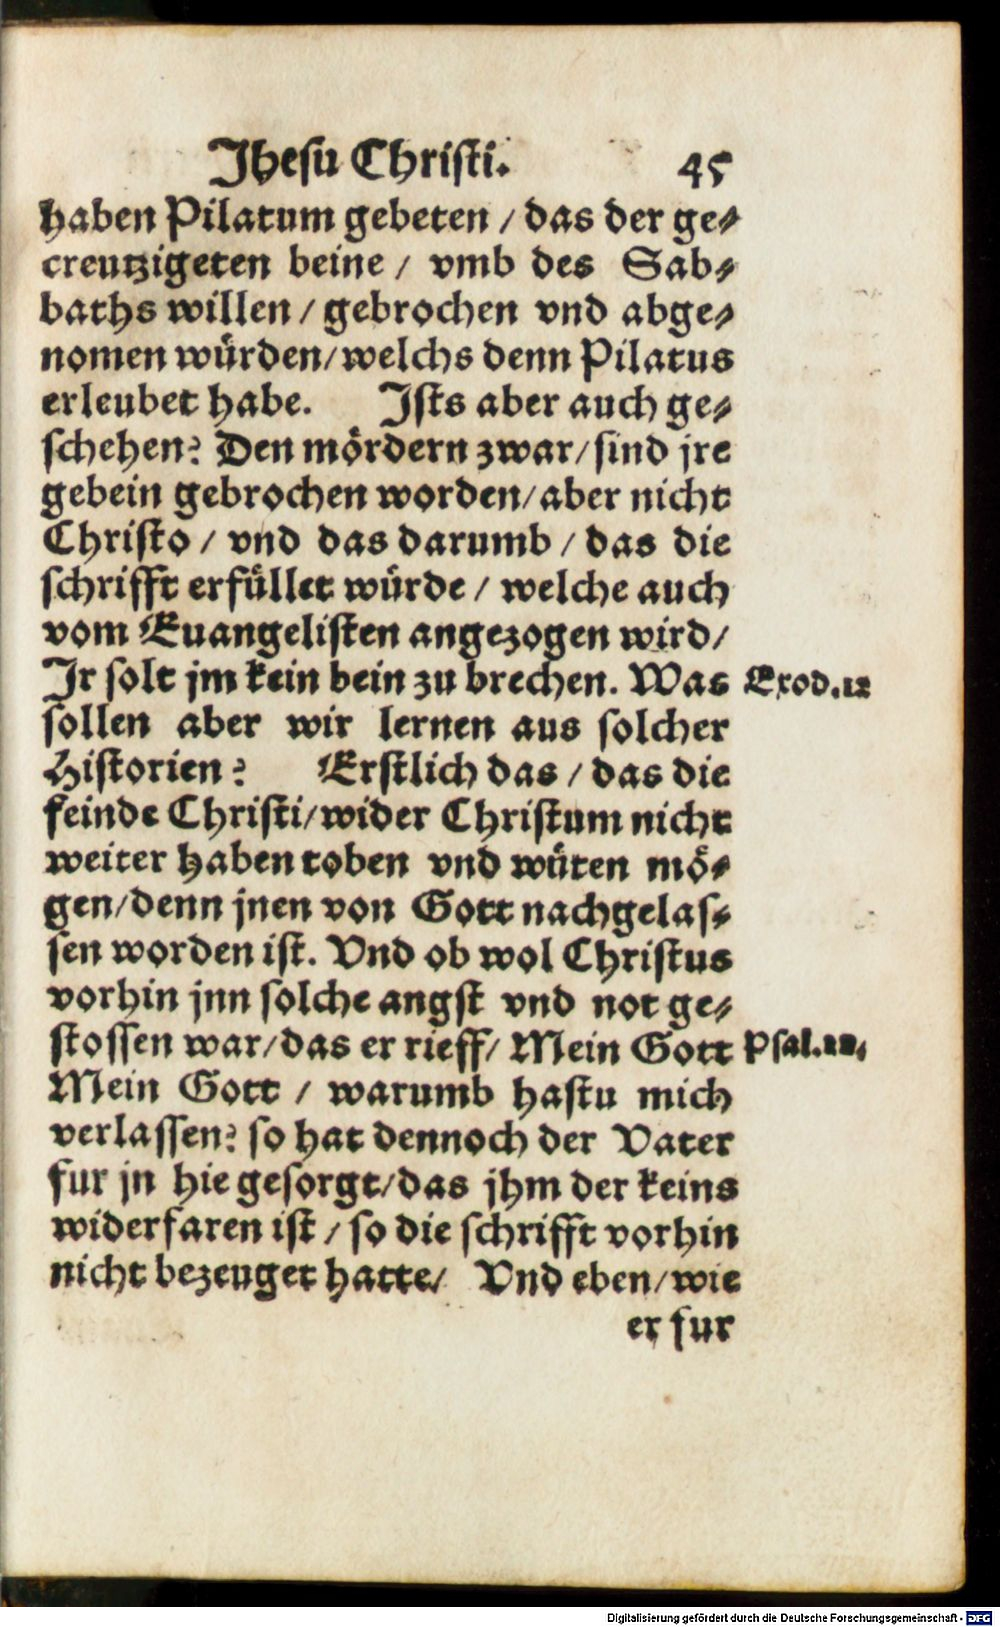 Jhesu Christi. 45
haben Pilatum gebeten / das der ge⸗
creutzigeten beine / vmb des Sab⸗
baths willen / gebrochen vnd abge⸗
nomen würden/welchs denn Pilatus
erleubet habe. Jsts aber auch ge⸗
schehen? Den mördern zwar/sind jre
gebein gebrochen worden/aber nicht
Christo / vnd das darumb / das die
schrifft erfüllet würde / welche auch
vom Euangelisten angezogen wird/
Jr solt jm kein bein zu brechen. Was Exod.12
sollen aber wir lernen aus solcher
Historien? Erstlich das / das die
feinde Christi/wider Christum nicht
weiter haben toben vnd wüten mö⸗
gen/denn jnen von Gott nachgelas⸗
sen worden ist. Vnd ob wol Christus
vorhin jnn solche angst vnd not ge⸗
stossen war/das er rieff/ Mein Gott Psal.22.
Mein Gott / warumb hastu mich
verlassen? so hat dennoch der Vater
fur jn hie gesorgt/das jhm der keins
widerfaren ist / so die schrifft vorhin
nicht bezeuget hatte/ Vnd eben/wie
er fur
Digitalisierung gefördert durch die Deutsche Forschungsgemeinschaft - DFG